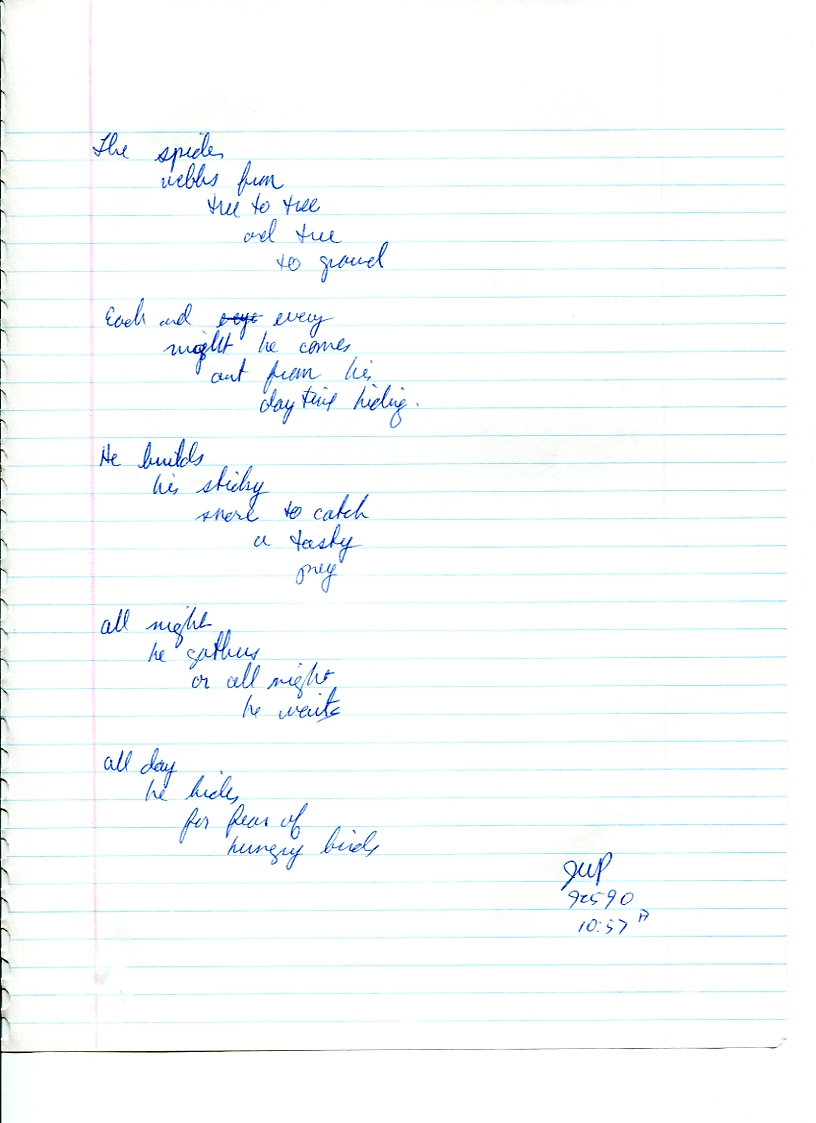 The spider
webbs from
tree to tree
and tree
to ground
Each and eye every
night he comes
out from his
daytime hiding.
He builds
his sticky
snare to catch
a tasty
prey
all night
he gathers
or all night
he waits
all day
he hides
for fear of
hungry birds
JWP
92590
10:57 A